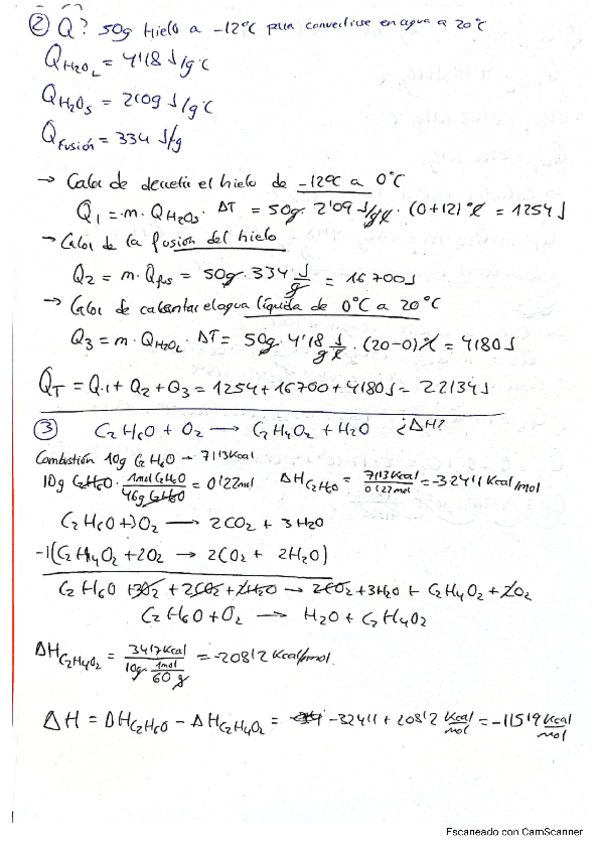 ② Q? 50g hielo a -12°C para convertirse en agua a 20°C
Q H2O L = 4'18 J/g°C
Q H2O S = 2'09 J/g°C
Q Fusión = 334 J/g
→ Calor de derretir el hielo de -12°C a 0°C
Q1 = m · Q H2OS · ΔT = 50g · 2'09 J/g°C · (0+12)°C = 1254 J
→ Calor de la fusion del hielo
Q2 = m · Q fus = 50g · 334 J/g = 16700 J
→ Calor de calentar el agua líquida de 0°C a 20°C
Q3 = m · Q H2OL · ΔT = 50g · 4'18 J/g°C · (20-0)°C = 4180 J
QT = Q1 + Q2 + Q3 = 1254 + 16700 + 4180 J = 22134 J
③ C2H6O + O2 → C2H4O2 + H2O ¿ΔH?
Combustión 10g C2H6O → 71'13 Kcal
10g C2H6O · 1mol C2H6O / 46g C2H6O = 0'22 mol ΔH C2H6O = 71'13 Kcal / 0'22 mol = -324'11 Kcal/mol
C2H6O + 3O2 → 2CO2 + 3H2O
-1(C2H4O2 + 2O2 → 2CO2 + 2H2O)
C2H6O + 3O2 + 2CO2 + 2H2O → 2CO2 + 3H2O + C2H4O2 + 2O2
C2H6O + O2 → H2O + C2H4O2
ΔH C2H4O2 = 34'17 Kcal / 10g · 1mol / 60g = -208'12 Kcal/mol.
ΔH = ΔH C2H6O - ΔH C2H4O2 = -324'11 + 208'12 Kcal/mol = -115'19 Kcal/mol
Escaneado con CamScanner